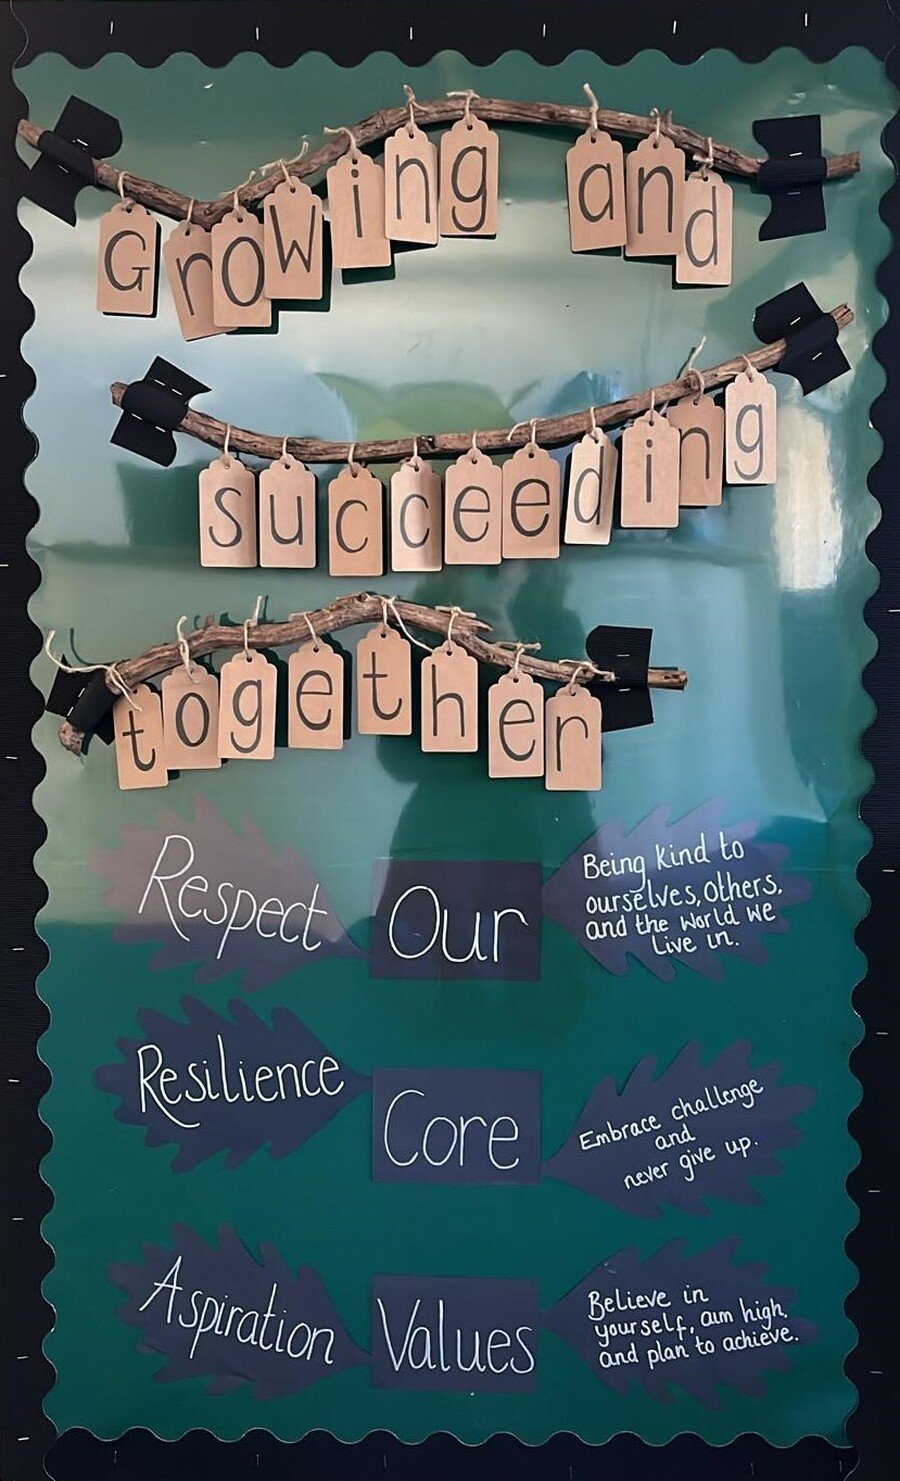 Growing and
succeeding
together
Respect
Our
Being kind to
ourselves, others,
and the world we
live in.
Resilience
Core
Embrace challenge
and
never give up.
Aspiration
Values
Believe in
yourself, aim high,
and plan to achieve.